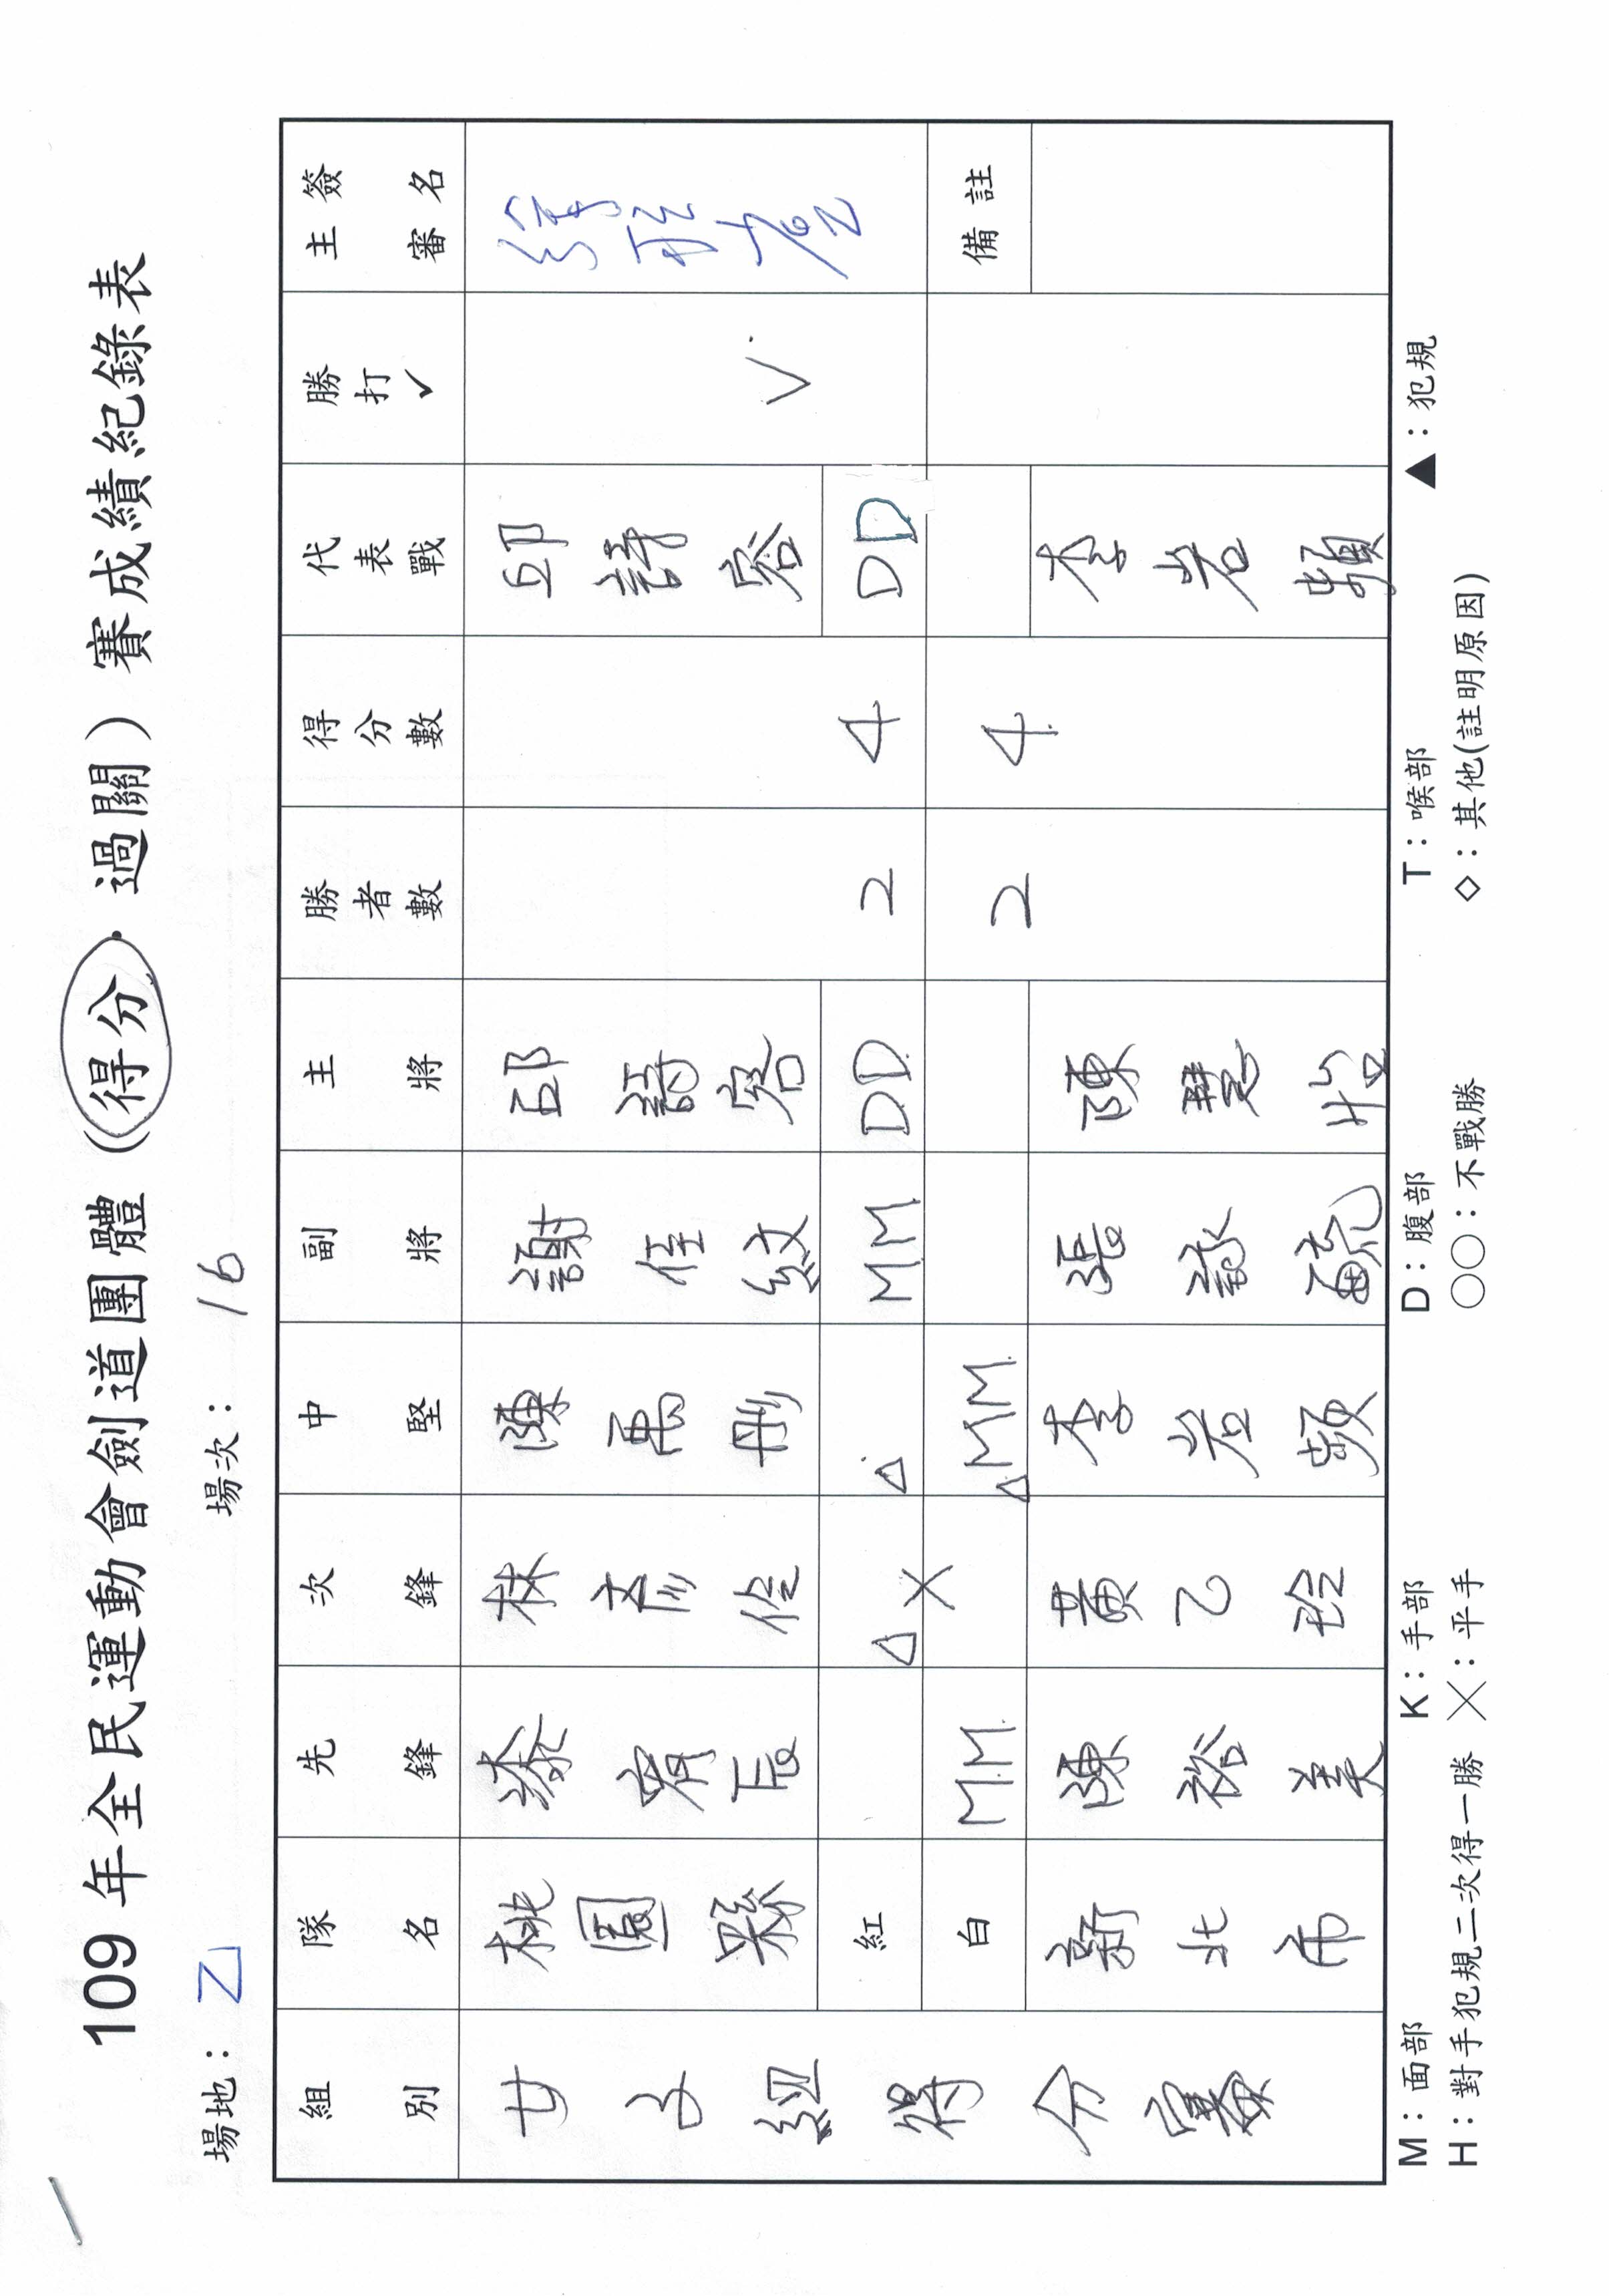 109 年全民運動會劍道團體（得分．過關）賽成績紀錄表
場地：乙 場次：16
組別 隊名 先鋒 次鋒 中堅 副將 主將 勝者數 得分數 代表戰 勝打✓ 主審簽名
女子組得分賽
桃園縣 林彥伶 謝佳紋 邱詩容 邱詩容
紅 △ △ MM DD 2 4 DD V
╳
白 MM △MM 2 4 備註
新北市 陳裕美 黃乙玲 李岩頻 陳慧怡 李岩頻
M：面部 K：手部 D：腹部 T：喉部 ▲：犯規
H：對手犯規二次得一勝 ╳：平手 ○○：不戰勝 ◇：其他(註明原因)